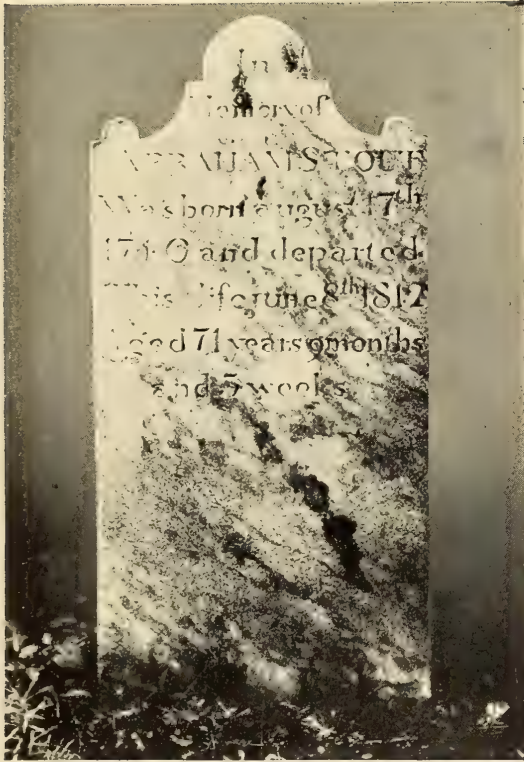 In
Memory of
ABRAHAM STOUT
Was born august 17th
1740 and departed
This life june 8th 1812
aged 71 years 9 months
and 3 weeks